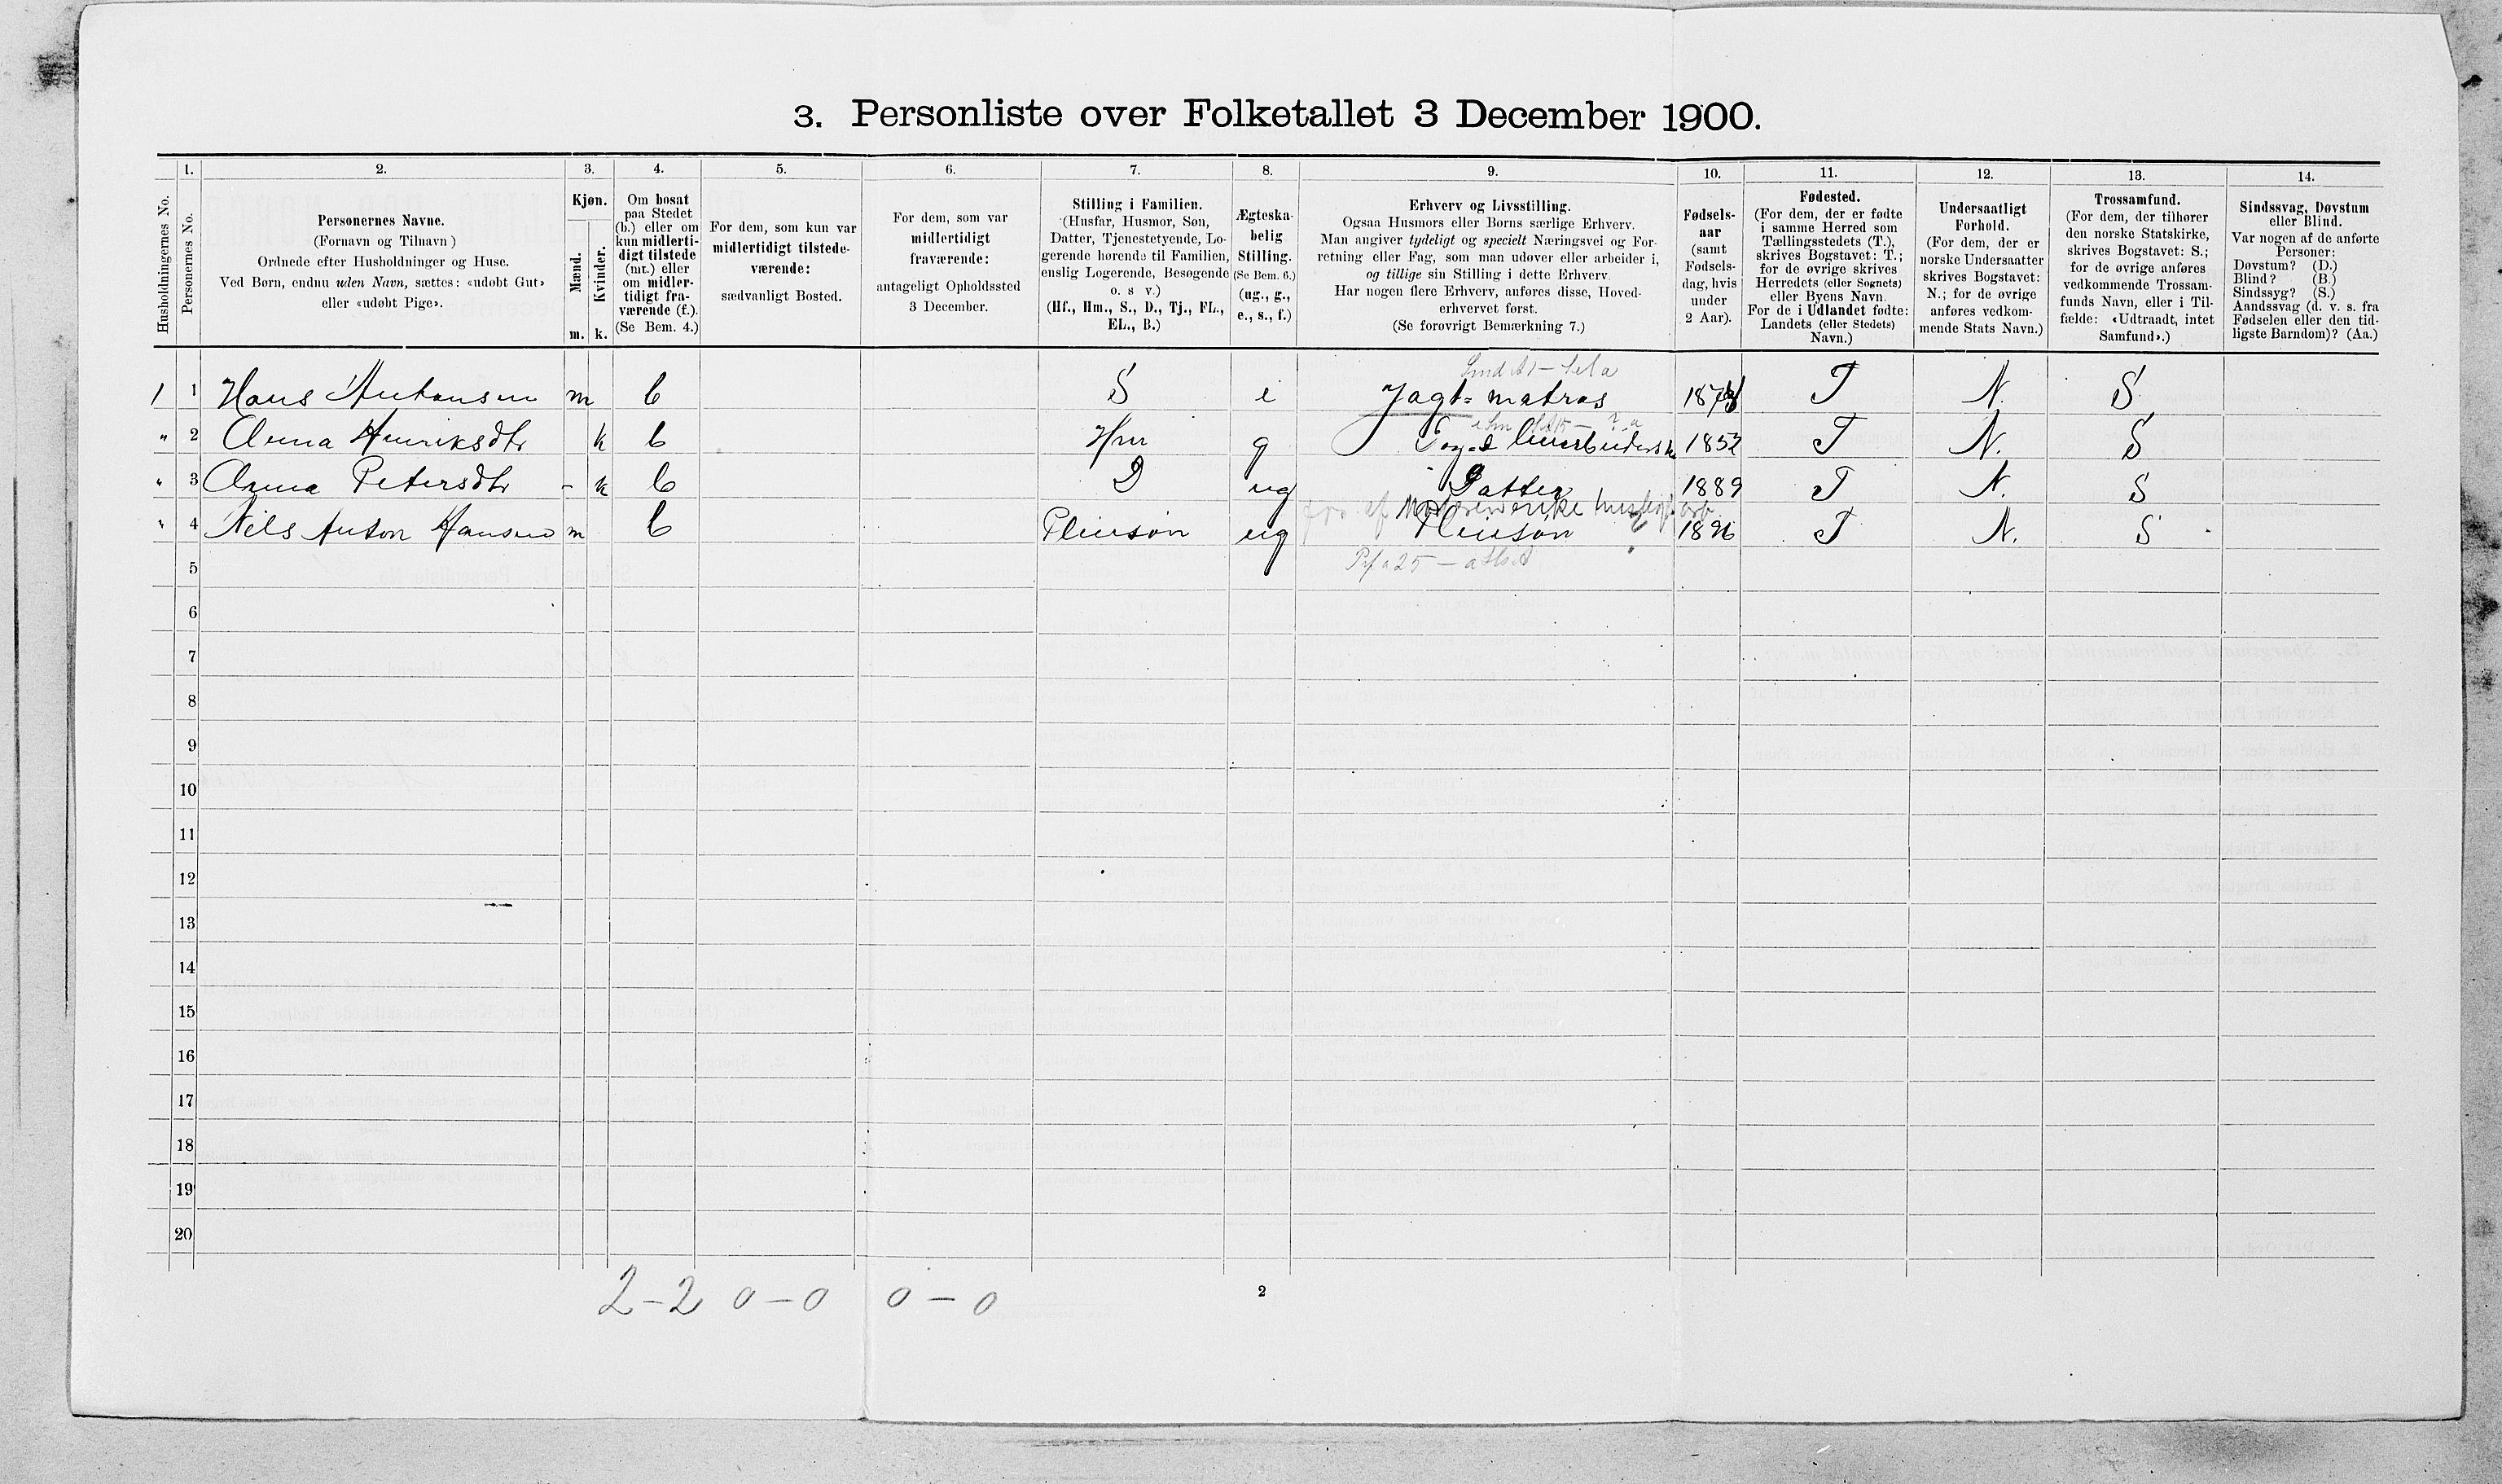 3. Personliste over Folketallet 3 December 1900.
Husholdningernes No.
1.
Personernes No.
2.
Personernes Navne.
(Fornavn og Tilnavn)
Ordnede efter Husholdninger og Huse.
Ved Børn, endnu uden Navn, sættes: «udøbt Gut»
eller «udøbt Pige».
3.
Kjøn.
Mænd.
Kvinder.
m. k.
4.
Om bosat
paa Stedet
(b.) eller om
kun midlerti-
digt tilstede
(mt.) eller
om midler-
tidigt fra-
værende (f.).
(Se Bem. 4.)
5.
For dem, som kun var
midlertidigt tilstede-
værende:
sædvanligt Bosted.
6.
For dem, som var
midlertidigt
fraværende:
antageligt Opholdssted
3 December.
7.
Stilling i Familien.
(Husfar, Husmor, Søn,
Datter, Tjenestetyende, Lo-
gerende hørende til Familien,
enslig Logerende, Besøgende
o. s v.)
(Hf., Hm., S., D., Tj., FL.,
EL., B.)
8.
Ægteska-
belig
Stilling.
(Se Bem. 6.)
(ug., g.,
e., s., f.)
9.
Erhverv og Livsstilling.
Ogsaa Husmors eller Børns særlige Erhverv.
Man angiver tydeligt og specielt Næringsvei og For-
retning eller Fag, som man udøver eller arbeider i,
og tillige sin Stilling i dette Erhverv.
Har nogen flere Erhverv, anføres disse, Hoved-
erhvervet først.
(Se forøvrigt Bemærkning 7.)
10.
Fødsels-
aar
(samt
Fødsels-
dag, hvis
under
2 Aar).
11.
Fødested.
(For dem, der er fødte
i samme Herred som
Tællingsstedets (T.),
skrives Bogstavet: T.;
for de øvrige skrives
Herredets (eller Sognets)
eller Byens Navn.
For de i Udlandet fødte:
Landets (eller Stedets)
Navn.)
12.
Undersaatligt
Forhold.
(For dem, der er
norske Undersaatter
skrives Bogstavet:
N.; for de øvrige
anføres vedkom-
mende Stats Navn.)
13.
Trossamfund.
(For dem, der tilhører
den norske Statskirke,
skrives Bogstavet: S.;
for de øvrige anføres
vedkommende Trossam-
funds Navn, eller i Til-
fælde: «Udtraadt, intet
Samfund».)
14.
Sindssvag, Døvstum
eller Blind.
Var nogen af de anførte
Personer:
Døvstum? (D.)
Blind? (B.)
Sindssyg? (S.)
Aandssvag (d. v. s. fra
Fødselen eller den tid-
ligste Barndom)? (Aa.)
1 1 Hans Antonsen m b S Jagt- matros T N. S
" 2 Anna Henriksdtr k b Hm g 1852 T N. S
" 3 Anna Petersdtr - k b D ug Datter 1889 T N. S
" 4 Nils Anton Hansen m b Pleiesøn ug Pleiesøn 1896 T N. S
5
6
7
8
9
10
11
12
13
14
15
16
17
18
19
20
2-2 0-0 0-0
2